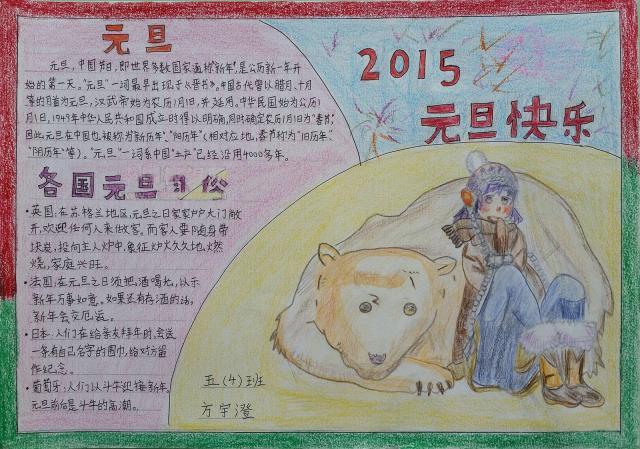 元旦
元旦,中国节日,即世界多数国家通称"新年",是公历新一年开
始的第一天。"元旦"一词最早出现于《晋书》。中国古代曾以腊月、十月
等的月首为元旦,汉武帝始为农历1月1日,并延用。中华民国始为公历1
月1日,1949年中华人民共和国成立时得以明确,同时确定农历1月1日为"春节",
因此元旦在中国也被称为"新历年"、"阳历年"(相对应地,春节称为"旧历年"、
"阴历年"等)。"元旦"一词系中国"土产"已经沿用4000多年。
各国元旦习俗
·英国:在苏格兰地区,元旦之日家家户户大门敞
开,欢迎任何人来做客。而客人要随身带
块炭,投向主人炉中,象征炉火久久地燃
烧,家庭兴旺。
·法国:在元旦之日须把酒喝光,以示
新年万事如意。如果还有存酒的话,
新年会交厄运。
·日本:人们在给亲友拜年时,会送
一条有自己名字的围巾,给对方留
作纪念。
·葡萄牙:人们以斗牛迎接新年,
元旦前后是斗牛的高潮。
2015
元旦快乐
五(4)班
方宇澄